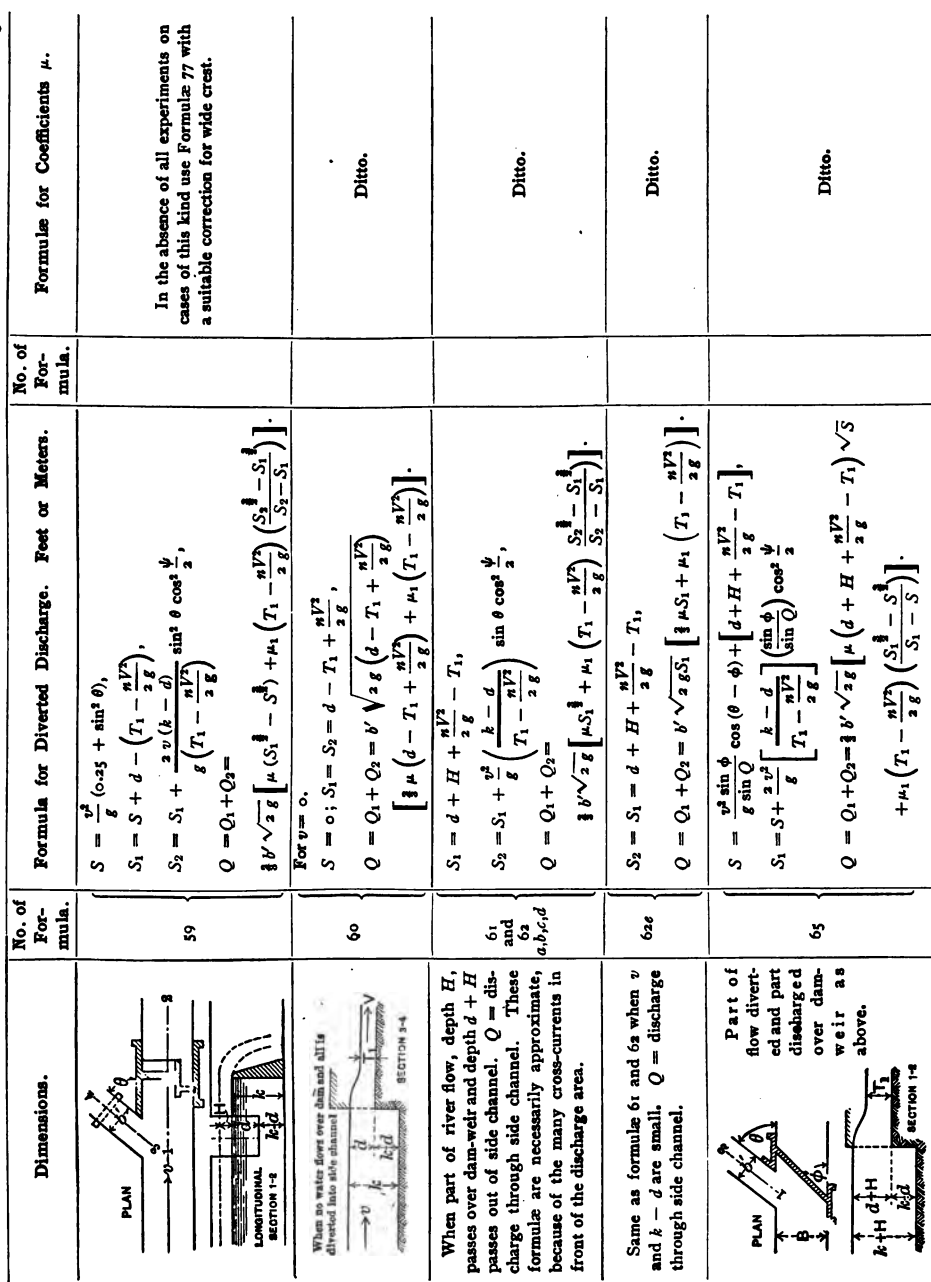 Dimensions.
No. of
For-
mula.
Formula for Diverted Discharge. Feet or Meters.
No. of
For-
mula.
Formulæ for Coefficients μ.
PLAN
1
2
3
4
v
b'
θ
LONGITUDINAL
SECTION 1-2
d
k
k-d
59
S = v²/g (0.25 + sin² θ),
S₁ = S + d − (T₁ − nV²/2g),
S₂ = S₁ + 2v(k − d)/g(T₁ − nV²/2g) sin² θ cos² ψ/2,
Q = Q₁+Q₂=
⅔ b' √2g [μ (S₁^{3/2} − S^{3/2}) + μ₁ (T₁ − nV²/2g) (S₂^{3/2} − S₁^{3/2} / S₂ − S₁)].
In the absence of all experiments on
cases of this kind use Formulæ 77 with
a suitable correction for wide crest.
When no water flows over dam and all is
diverted into side channel
v
V
d
k
k-d
T₁
SECTION 3-4
60
For v = 0.
S = 0; S₁ = S₂ = d − T₁ + nV²/2g,
Q = Q₁ + Q₂ = b' √2g (d − T₁ + nV²/2g)
[⅔ μ (d − T₁ + nV²/2g) + μ₁ (T₁ − nV²/2g)].
Ditto.
When part of river flow, depth H,
passes over dam-weir and depth d + H
passes out of side channel. Q = dis-
charge through side channel. These
formulæ are necessarily approximate,
because of the many cross-currents in
front of the discharge area.
61
and
62
a,b,c,d
S₁ = d + H + nV²/2g − T₁,
S₂ = S₁ + v²/g (k − d / T₁ − nV²/2g) sin θ cos² ψ/2,
Q = Q₁+Q₂=
⅔ b'√2g [μS₁^{3/2} + μ₁ (T₁ − nV²/2g) S₂^{3/2} − S₁^{3/2} / S₂ − S₁].
Ditto.
Same as formulæ 61 and 62 when v
and k − d are small. Q = discharge
through side channel.
62e
S₂ = S₁ = d + H + nV²/2g − T₁,
Q = Q₁+Q₂ = b' √2gS₁ [⅔ μS₁ + μ₁ (T₁ − nV²/2g)].
Ditto.
PLAN
B
b
θ
φ
1
Part of
flow divert-
ed and part
discharged
over dam-
weir as
above.
k+H
d+H
k-d
T₁
SECTION 1-2
65
S = v² sin φ / g sin Q cos (θ − φ) + [d+H+ nV²/2g − T₁],
S₁ = S + 2v²/g [k − d / T₁ − nV²/2g] (sin φ / sin Q) cos² ψ/2
Q = Q₁+Q₂=⅔ b'√2g [μ (d + H + nV²/2g − T₁) √S
+μ₁ (T₁ − nV²/2g) (S₁^{3/2} − S^{3/2} / S₁ − S)].
Ditto.